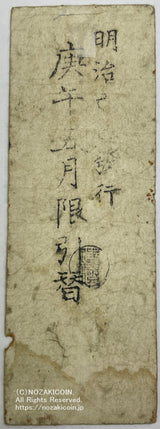 明治 発行
庚午五月限引替
(C)NOZAKICOIN,
All Rights Reserved.
https://nozakicoin.com